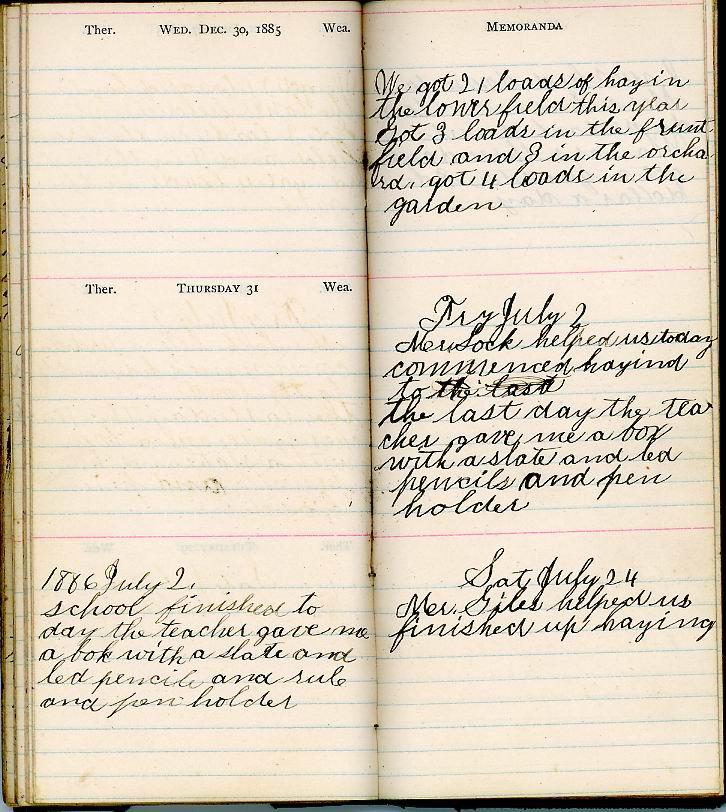 Ther. WED. DEC. 30, 1885 Wea.
Ther. THURSDAY 31 Wea.
1886 July 2.
school finished to
day the teacher gave me
a box with a slate and
led pencile and rule
and pen holder
MEMORANDA
We got 21 loads of hay in
the lower field this year
Got 3 loads in the frunt
field and 3 in the orcha
rd. got 4 loads in the
garden
Fry July 2
Mer Lock helped us today
commenced hayind
to the last
the last day the tea
cher gave me a box
with a slate and led
pencils and pen
holder
Sat July 24
Mer. Giles helped us
finished up haying